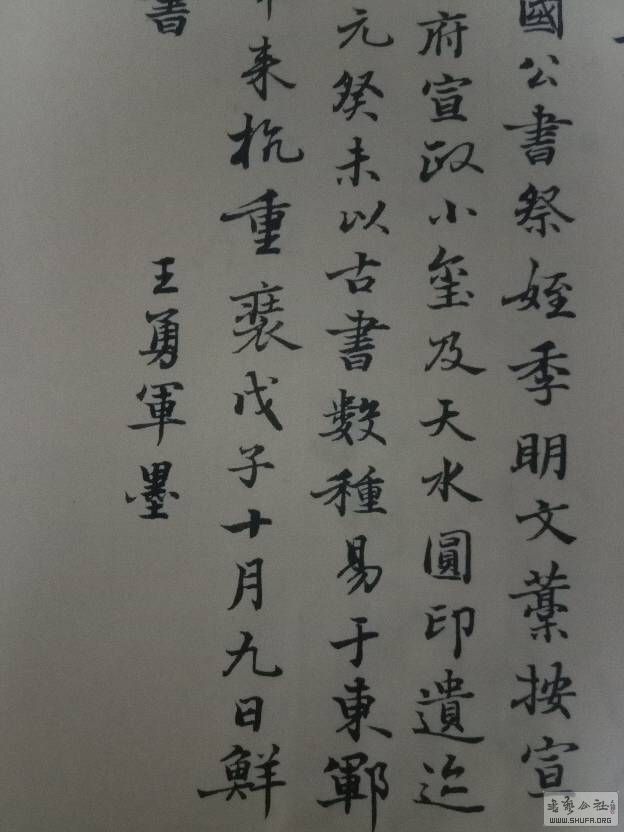 國公書祭姪季明文藁按宣
府宣政小璽及天水圓印遺迹
元癸未以古書數種易于東鄆
來杭重裝戊子十月九日鮮
書
王勇軍墨
WWW.SHUFA.ORG